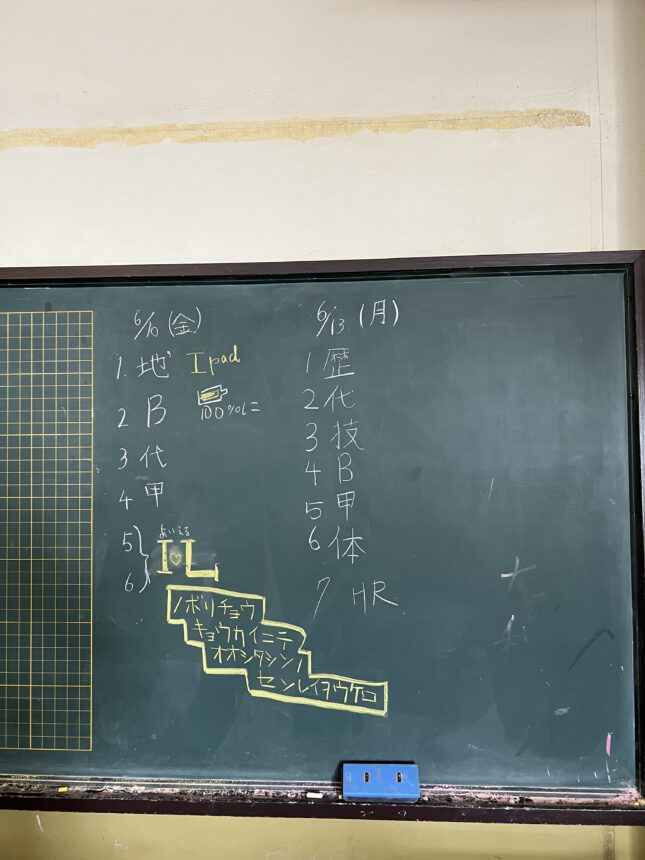 6/10 (金)
1. 地 Ipad
100%に
2 B
3 代
4 甲
5
6
あいえる
I♡L
ノボリチョウ
キョウカイニテ
オオシタシンノ
センレイヲウケロ
6/13 (月)
1 歴
2 代
3 技
4 B
5 甲
6 体
7 HR